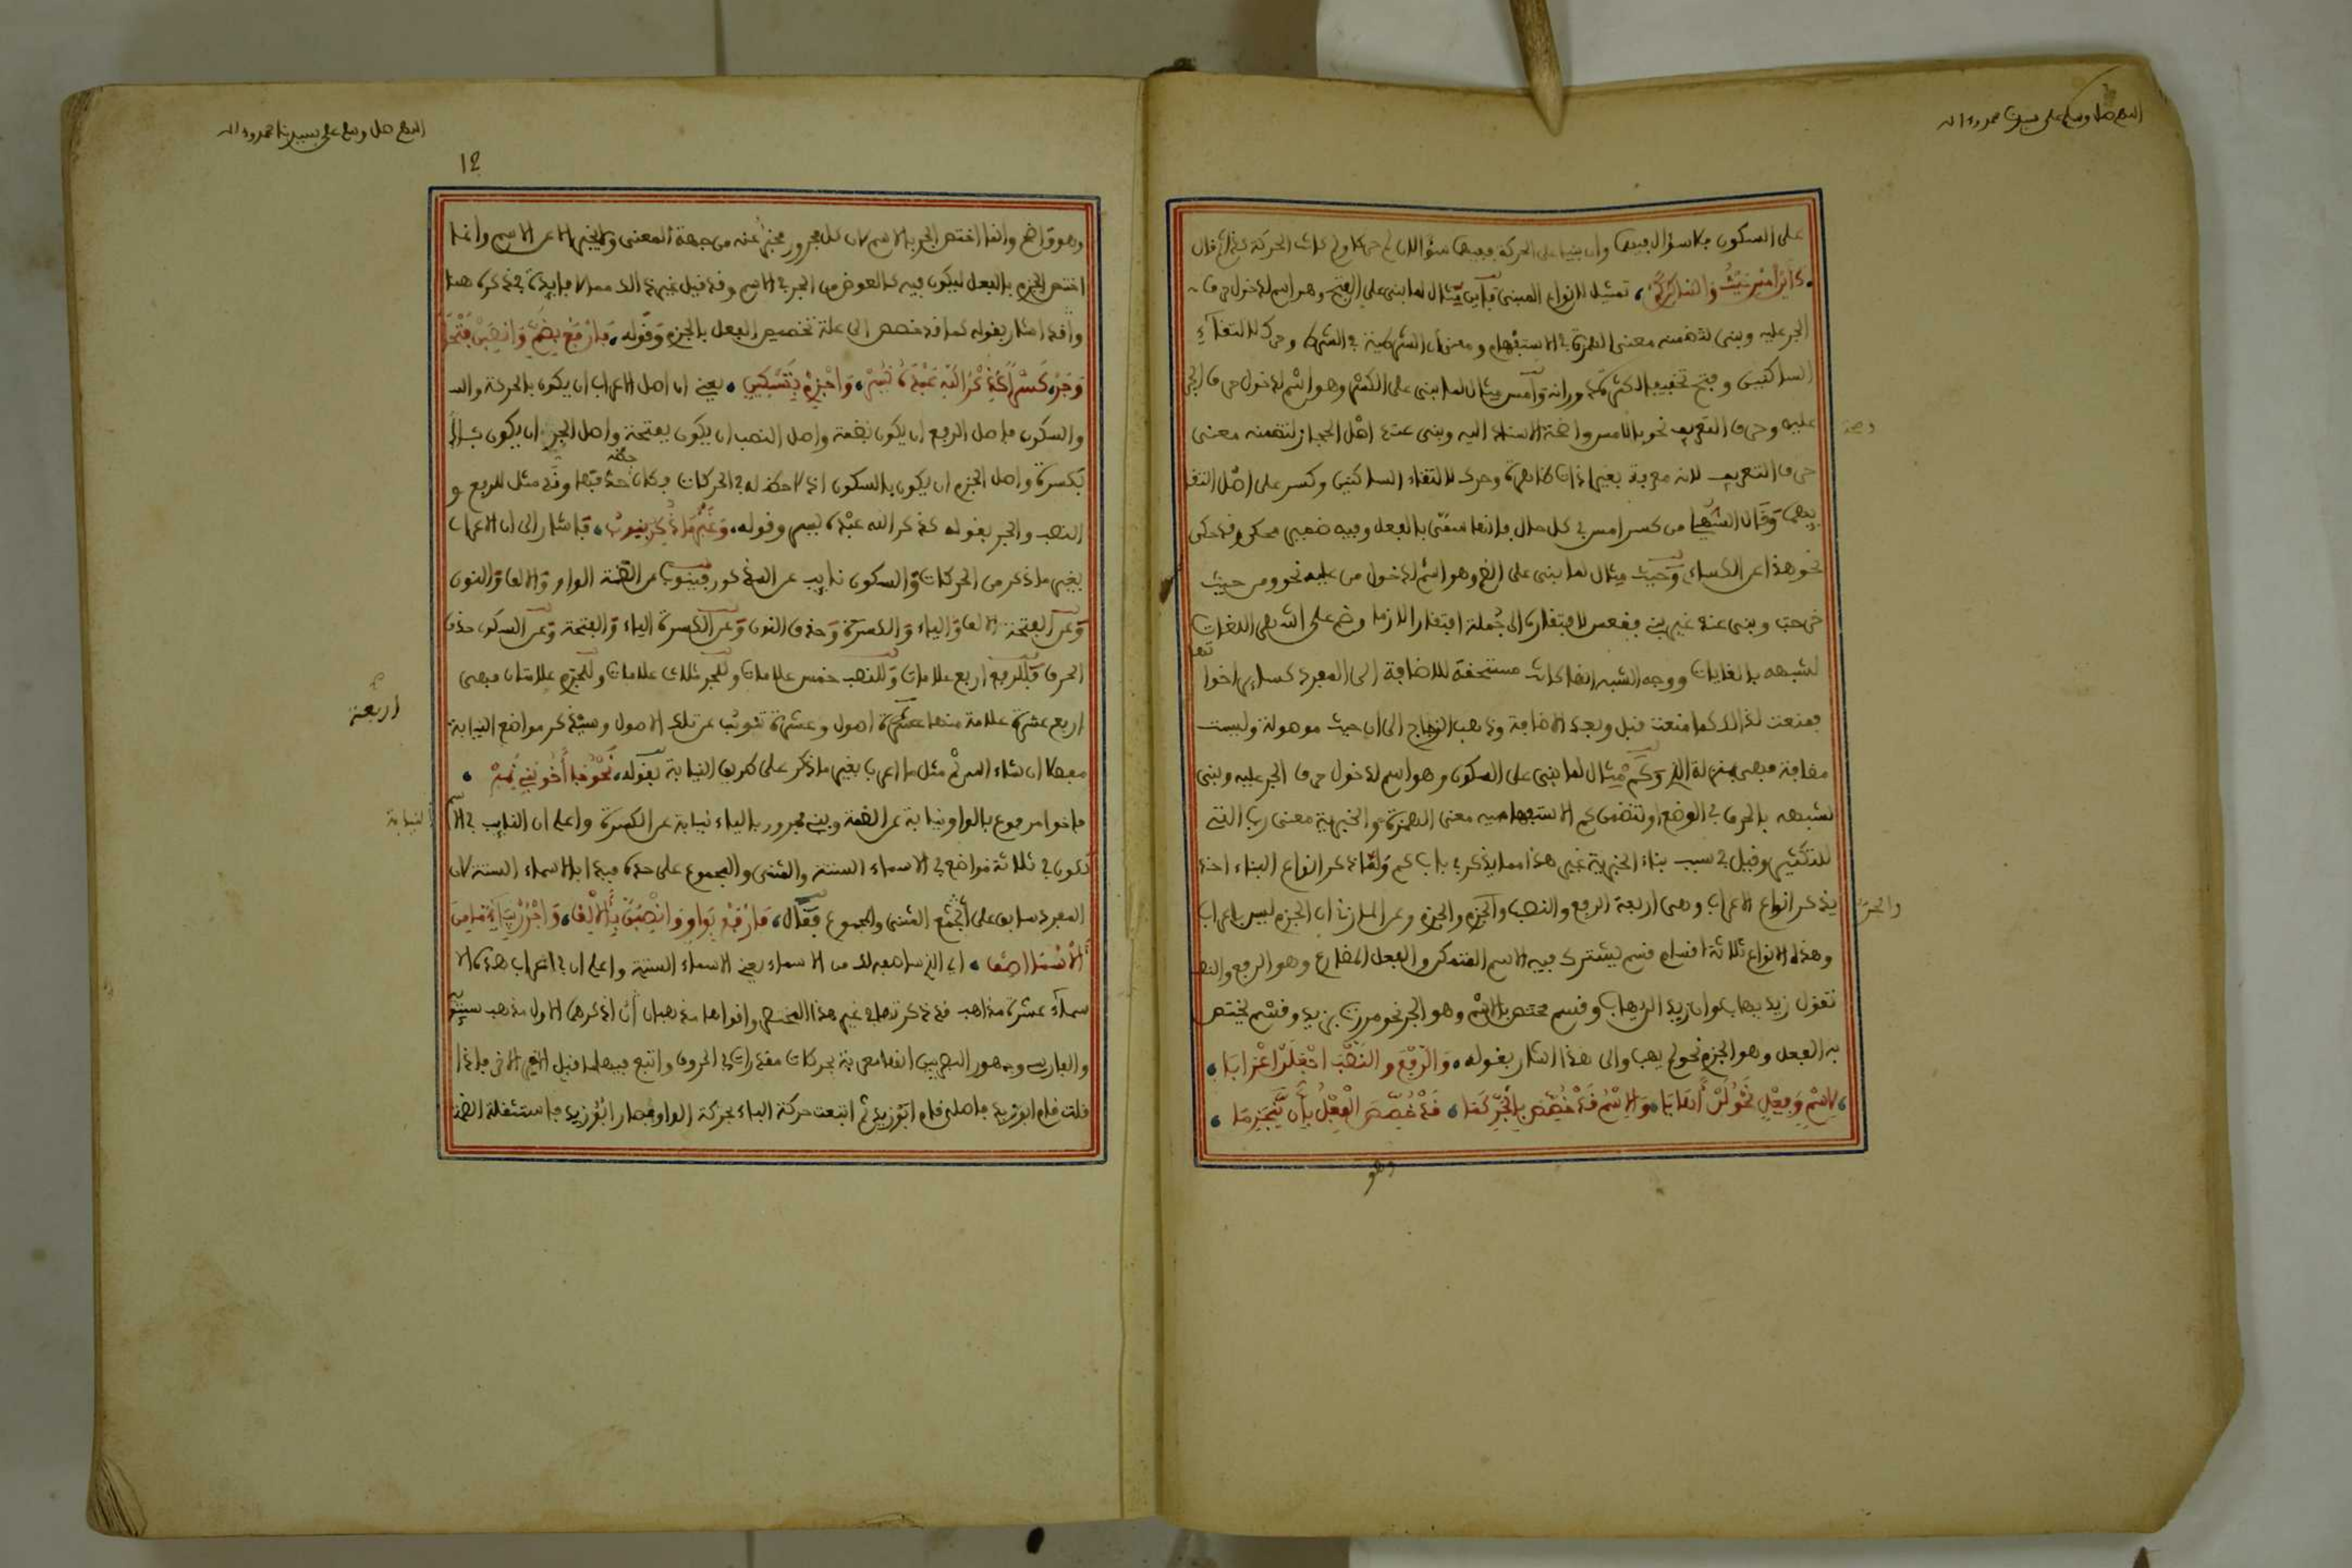 اللهم صل وسلم على سيدنا محمد وءاله
على السكون فلا سؤال فيه وان بنى على الحركة ففيه سؤالان لم حرك ولم كانت الحركة كذا ثم قال
كأين أمس حيث والساكن كم، تمثيل لانواع المبنى فأين مثال لما بنى على الفتح وهو اسم لدخول حرف
الجر عليه وبنى لتضمنه معنى الهمزة في الاستفهام ومعنى ان الشرطية في الشرط وحرك لالتقاء
الساكنين وفتح تخفيفا وأمس مثال لما بنى على الكسر وهو اسم لدخول حرف الجر
عليه وحرف التعريف نحو بالامس وصحة الاسناد اليه وبنى عند اهل الحجاز لتضمنه معنى
حرف التعريف لانه معرفة بغير اداة ظاهرة وحرك لالتقاء الساكنين وكسر على اصل التقا
ئهما وقال من كسر امس في كل حال فانما سمى بالفعل وفيه ضمير محكى وقد حكى
نحو هذا عن الكساءى وحيث مثال لما بنى على الضم وهو اسم لدخول من عليه نحو ومن حيث
خرجت وبنى عند غير بنى فقعس لافتقاره الى جملة افتقارا لازما وضم على اشهر اللغات
لشبهه بالغايات ووجه الشبه انها كانت مستحقة للاضافة الى المفرد كساير اخواتها
فمنعت ذالك كما منعت قبل وبعد الاضافة وذهب الزجاج الى ان حيث موصولة وليست
مضافة فهى بمنزلة الذى وكم مثال لما بنى على السكون وهو اسم لدخول حرف الجر عليه وبنى
لشبهه بالحرف في الوضع او لتضمن كم الاستفهامية معنى الهمزة والخبرية معنى رب التى
للتكثير وقيل في سبب بناء الخبرية غير هذا مما يذكر في باب كم ولما ذكر انواع البناء اخذ
يذكر انواع الاعراب وهى اربعة الرفع والنصب والجر والجزم وعن المازنى ان الجزم ليس باعراب
والجر
وهذه الانواع ثلاثة اقسام قسم يشترك فيه الاسم المتمكن والفعل المضارع وهو الرفع والنصب
تقول زيد يهاب وان زيدا لن يهاب وقسم مختص بالاسم وهو الجر نحو مررت بزيد وقسم يختص
به الفعل وهو الجزم نحو لم يهب والى هذا اشار بقوله، والرفع والنصب اجعلن اعرابا،
لاسم وفعل نحو لن أهابا، والاسم قد خصص بالجر كما، قد خصص الفعل بأن ينجزما،
وهو
اللهم صل وسلم على سيدنا محمد وءاله
12
وهو واضح وانما اختص الجر بالاسم لان كل مجرور مخبر عنه من جهة المعنى ولا يخبر الا عن الاسم وانما
اختص الجزم بالفعل ليكون فيه كالعوض من الجر في الاسم وقد قيل غير ذالك مما لا فايدة في ذكره هنا
وقد اشار بقوله كما قد خصص الى علة تخصيص الفعل بالجزم وقوله، فارفع بضم وانصبن فتحا
وجر، كسرا كذكر الله عبده يسر، واجزم بتسكين، يعنى ان اصل الاعراب ان يكون بالحركة
والسكون فاصل الرفع ان يكون بضمة واصل النصب ان يكون بفتحة واصل الجر ان يكون
بكسرة واصل الجزم ان يكون بالسكون اذ لا حظ له في الحركات فكان حظه حذفها وقد مثل للرفع و
النصب والجر بقوله كذكر الله عبده يسر وقوله، وغير ما ذكر ينوب، فاشار الى ان الاعراب
بغير ما ذكر من الحركات والسكون نايب عن المذكور فينوب عن الضمة الواو والالف والنون
وعن الفتحة الالف والياء والكسرة وحذف النون وعن الكسرة الياء والفتحة وعن السكون حذف
الحرف فللرفع اربع علامات وللنصب خمس علامات وللجر ثلاث علامات وللجزم علامتان فهى
اربع عشرة علامة منها اربعة اصول وعشرة تنوب عن تلك الاصول وسيذكر مواضع النيابة
اربعة
مفصلا ان شاء الله ثم مثل ما اعرب بغير ما ذكر على طريق النيابة بقوله، نحو جا أخو بنى نمر،
فاخوا مرفوع بالواو نيابة عن الضمة وبنى مجرور بالياء نيابة عن الكسرة واعلم ان النايب في الاسم
النيابة
تكون في ثلاثة مواضع في الاسماء الستة والمثنى والمجموع على حده فبدا بالاسماء الستة لان
المفرد سابق على المثنى والمجموع فقال، فارفع بواو وانصبن بالألف، واجرر بياء ما من
الأسما اصف، اى الذى ساصفه لك من الاسماء يعنى الاسماء الستة واعلم ان في اعراب هذه الا
سماء عشرة مذاهب قد ذكرتها في غير هذا المختصر واقواها مذهبان اذكرهما الاول مذهب سيبويه
والفارسى وجمهور البصريين انها معربة بحركات مقدرات في الحروف واتبع فيها ما قبل الاخر الاخر فاذا
قلت قام ابو زيد فاصله قام ابو زيد ثم اتبعت حركة الباء بحركة الواو فصار ابو زيد فاستثقلت الضمة